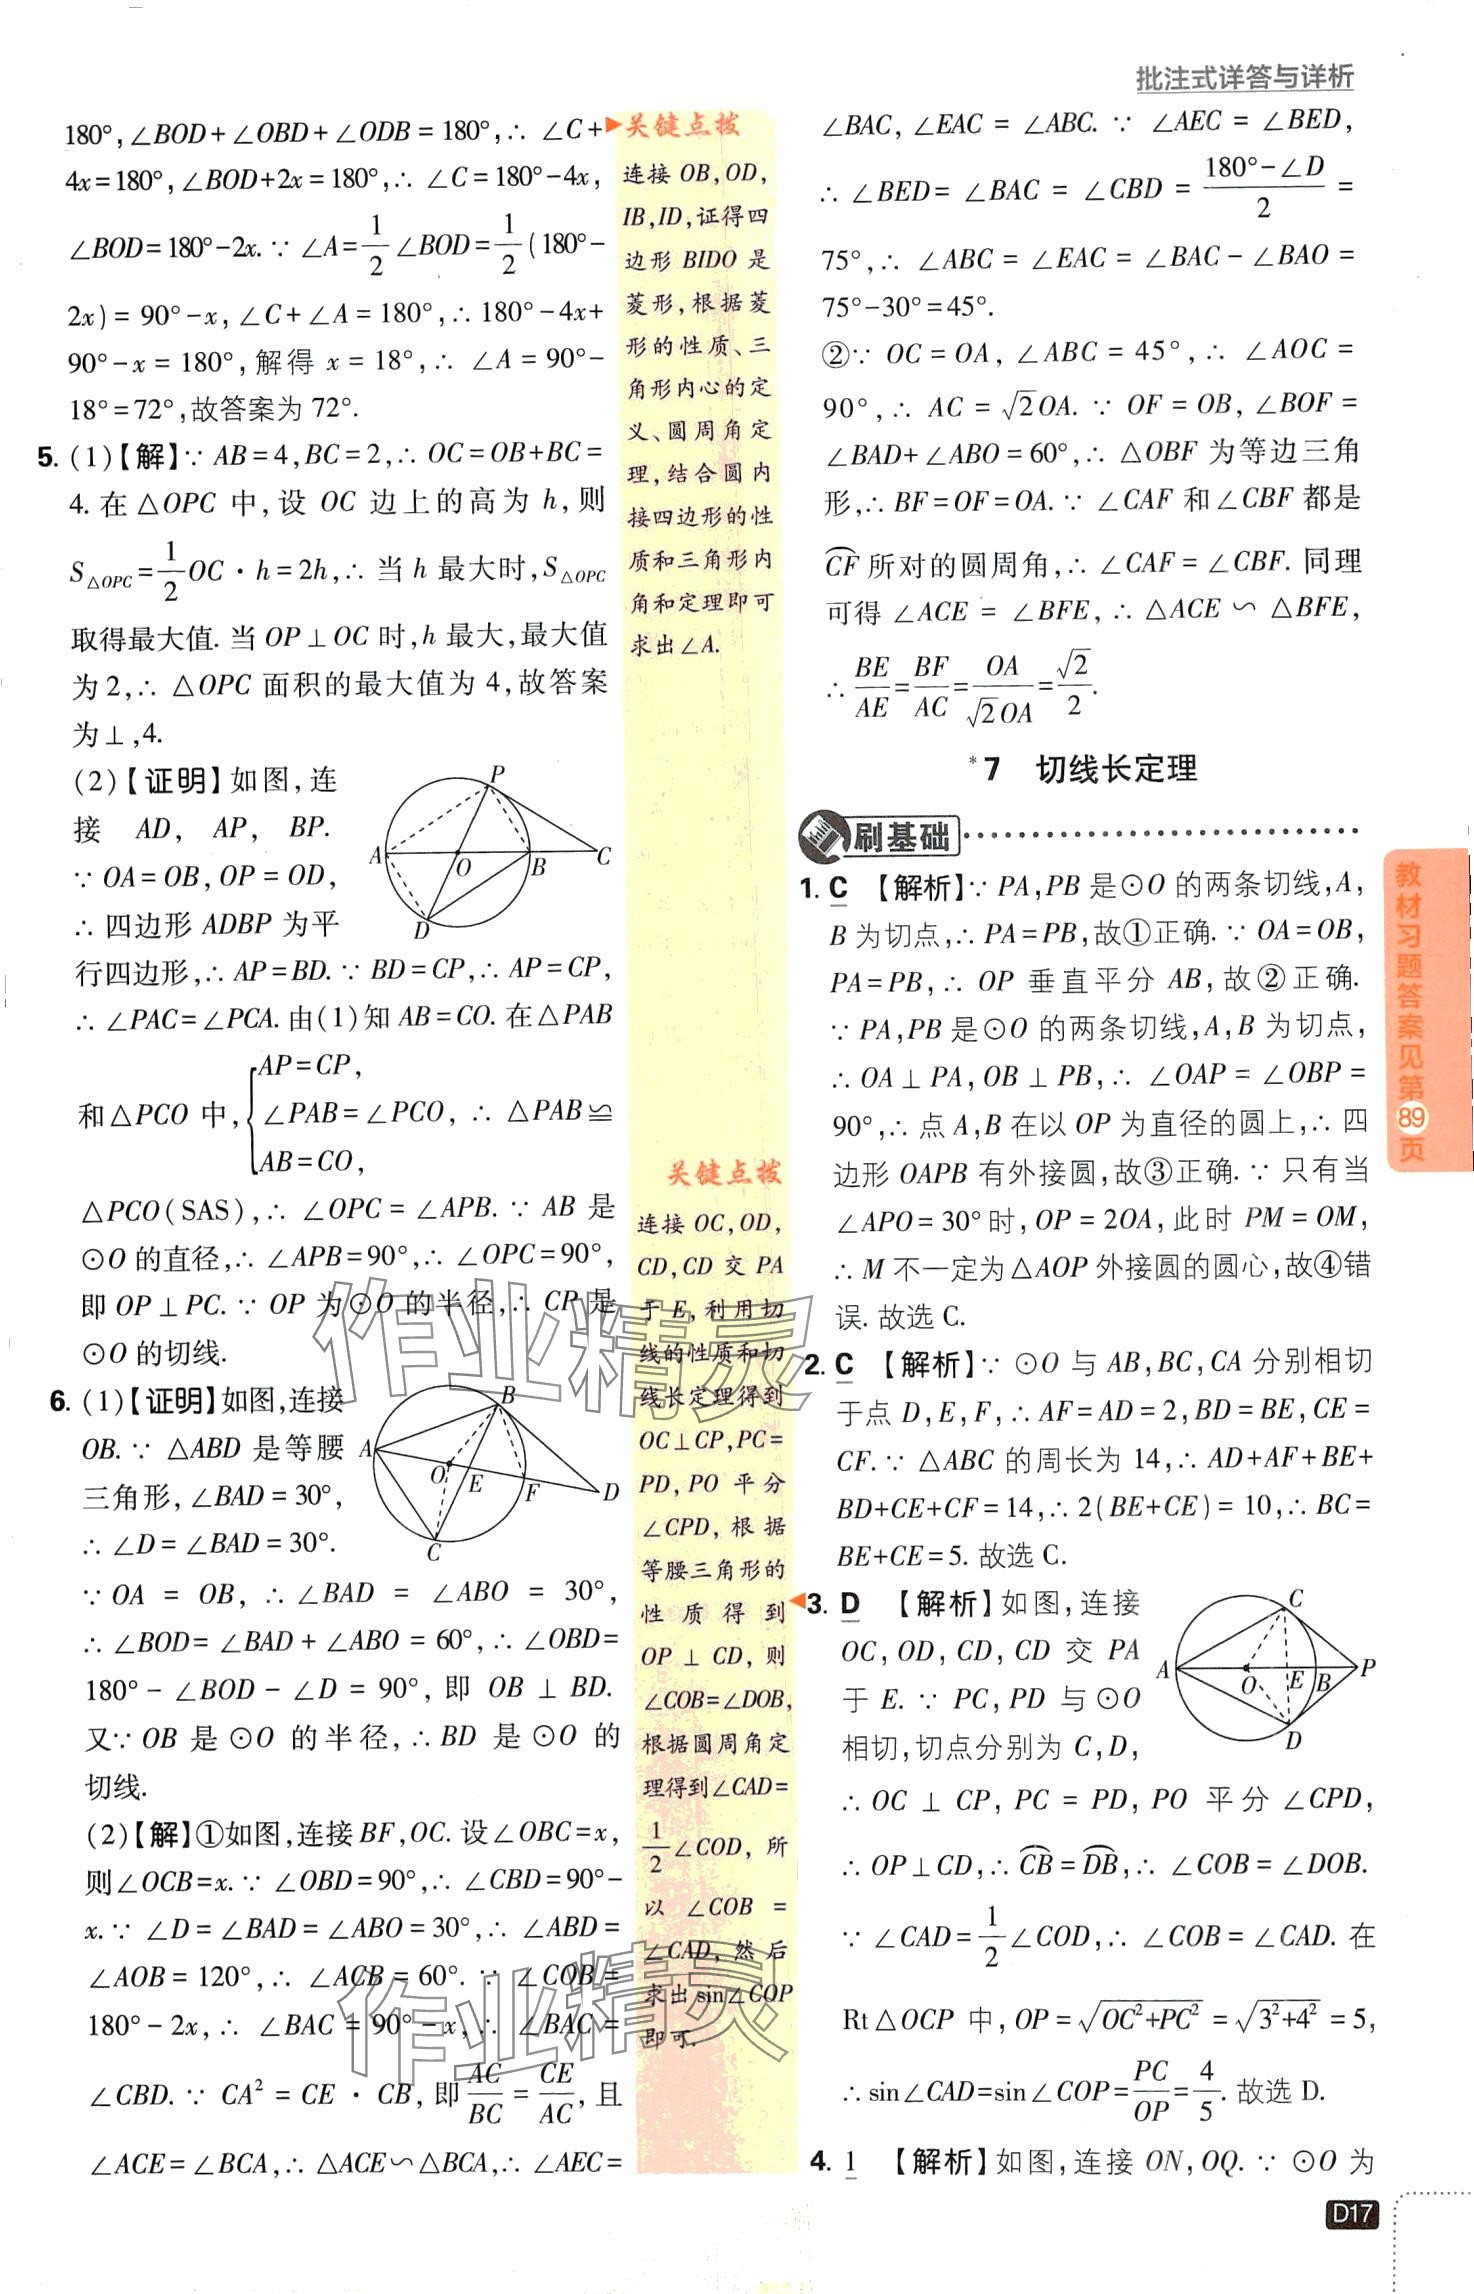 批注式详答与详析
180°,∠BOD+∠OBD+∠ODB=180°,∴ ∠C+
4x=180°,∠BOD+2x=180°,∴ ∠C=180°-4x,
∠BOD=180°-2x.∵ ∠A=1/2∠BOD=1/2(180°-
2x)=90°-x,∠C+∠A=180°,∴180°-4x+
90°-x=180°,解得 x=18°,∴ ∠A=90°-
18°=72°,故答案为 72°.
5. (1)【解】∵ AB=4,BC=2,∴ OC=OB+BC=
4. 在△OPC 中,设 OC 边上的高为 h,则
S△OPC=1/2OC·h=2h,∴ 当 h 最大时,S△OPC
取得最大值. 当 OP⊥OC 时,h 最大,最大值
为 2,∴ △OPC 面积的最大值为 4,故答案
为⊥,4.
(2)【证明】如图,连
接 AD, AP, BP.
∵ OA=OB,OP=OD,
∴ 四边形 ADBP 为平
行四边形,∴ AP=BD.∵ BD=CP,∴ AP=CP,
∴ ∠PAC=∠PCA. 由(1)知 AB=CO. 在△PAB
AP=CP,
和△PCO 中,{∠PAB=∠PCO, ∴ △PAB≌
AB=CO,
△PCO(SAS),∴ ∠OPC=∠APB.∵ AB 是
⊙O 的直径,∴ ∠APB=90°,∴ ∠OPC=90°,
即 OP⊥PC.∵ OP 为⊙O 的半径,∴ CP 是
⊙O 的切线.
P
A
O
B
C
D
6. (1)【证明】如图,连接
OB.∵ △ABD 是等腰
三角形,∠BAD=30°,
∴ ∠D=∠BAD=30°.
∵ OA = OB,∴ ∠BAD = ∠ABO = 30°,
∴ ∠BOD=∠BAD+∠ABO=60°,∴ ∠OBD=
180°-∠BOD-∠D=90°,即 OB⊥BD.
又∵ OB 是⊙O 的半径,∴ BD 是⊙O 的
切线.
B
A
O
E
F
D
C
(2)【解】①如图,连接 BF,OC. 设∠OBC=x,
则∠OCB=x.∵ ∠OBD=90°,∴ ∠CBD=90°-
x.∵ ∠D=∠BAD=∠ABO=30°,∴ ∠ABD=
∠AOB=120°,∴ ∠ACB=60°.∵ ∠COB=
180°-2x,∴ ∠BAC=90°-x,∴ ∠BAC=
∠CBD.∵ CA²=CE·CB,即AC/BC=CE/AC,且
∠ACE=∠BCA,∴ △ACE∽△BCA,∴ ∠AEC=
关键点拨
连接 OB,OD,
IB,ID,证得四
边形 BIDO 是
菱形,根据菱
形的性质、三
角形内心的定
义、圆周角定
理,结合圆内
接四边形的性
质和三角形内
角和定理即可
求出∠A.
关键点拨
连接 OC,OD,
CD,CD 交 PA
于 E,利用切
线的性质和切
线长定理得到
OC⊥CP,PC=
PD,PO 平分
∠CPD,根据
等腰三角形的
性质得到
OP⊥CD,则
∠COB=∠DOB,
根据圆周角定
理得到∠CAD=
1/2∠COD,所
以 ∠COB =
∠CAD,然后
求出 sin∠COP
即可.
∠BAC,∠EAC=∠ABC.∵ ∠AEC=∠BED,
∴ ∠BED=∠BAC=∠CBD=(180°-∠D)/2=
75°,∴ ∠ABC=∠EAC=∠BAC-∠BAO=
75°-30°=45°.
②∵ OC=OA,∠ABC=45°,∴ ∠AOC=
90°,∴ AC=√2OA.∵ OF=OB,∠BOF=
∠BAD+∠ABO=60°,∴ △OBF 为等边三角
形,∴ BF=OF=OA.∵ ∠CAF 和∠CBF 都是
CF所对的圆周角,∴ ∠CAF=∠CBF. 同理
可得∠ACE=∠BFE,∴ △ACE∽△BFE,
∴ BE/AE=BF/AC=OA/√2OA=√2/2.
*7 切线长定理
刷基础
1. C 【解析】∵ PA,PB 是⊙O 的两条切线,A,
B 为切点,∴ PA=PB,故①正确.∵ OA=OB,
PA=PB,∴ OP 垂直平分 AB,故②正确.
∵ PA,PB 是⊙O 的两条切线,A,B 为切点,
∴ OA⊥PA,OB⊥PB,∴ ∠OAP=∠OBP=
90°,∴ 点 A,B 在以 OP 为直径的圆上,∴ 四
边形 OAPB 有外接圆,故③正确.∵ 只有当
∠APO=30°时,OP=2OA,此时 PM=OM,
∴ M 不一定为△AOP 外接圆的圆心,故④错
误. 故选 C.
2. C 【解析】∵ ⊙O 与 AB,BC,CA 分别相切
于点 D,E,F,∴ AF=AD=2,BD=BE,CE=
CF.∵ △ABC 的周长为 14,∴ AD+AF+BE+
BD+CE+CF=14,∴ 2(BE+CE)=10,∴ BC=
BE+CE=5. 故选 C.
3. D 【解析】如图,连接
OC,OD,CD,CD 交 PA
于 E.∵ PC,PD 与⊙O
相切,切点分别为 C,D,
∴ OC⊥CP,PC=PD,PO 平分∠CPD,
∴ OP⊥CD,∴ CB=DB,∴ ∠COB=∠DOB.
∵ ∠CAD=1/2∠COD,∴ ∠COB=∠CAD. 在
Rt△OCP 中,OP=√(OC²+PC²)=√(3²+4²)=5,
∴ sin∠CAD=sin∠COP=PC/OP=4/5. 故选 D.
C
A
O
E
B
P
D
4. 1 【解析】如图,连接 ON,OQ.∵ ⊙O 为
教材习题答案见第89页
D17
作业精灵
作业精灵